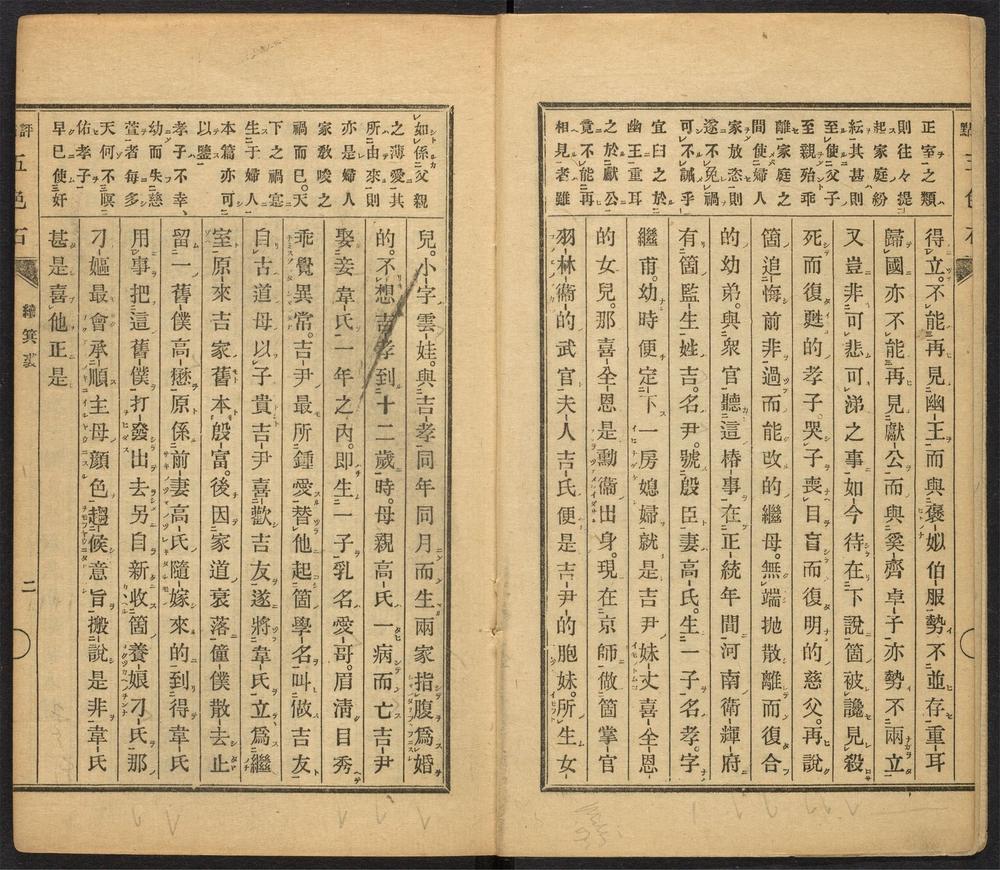 正室之類
則往々提
起家庭紛
紜其甚則
至使父子
至親殆乖
離家庭之
間使婦人
家放恣則
遂不免禍
可不誡乎
宜臼之於
幽王重耳
之於獻公
竟不能再
相見者雖
得立不能再見幽王而與褒姒伯服勢不並存重耳
歸國亦不能再見獻公而與奚齊卓子亦勢不兩立
又豈非可悲可涕之事如今待在下說箇被讒見殺
死而復甦的孝子哭子喪目盲而復明的慈父。再說
箇追悔前非過而能改的繼母。無端拋散離而復合
的幼弟。與衆官聽這樁事在正統年間河南衛輝府
有箇監生姓吉。名尹。號殷臣妻高氏。生一子名孝。字
繼甫。幼時便定下一房媳婦就是吉尹妹丈喜全恩
的女兒。那喜全恩是勳衞出身。現在京師做箇掌官
羽林衞的武官夫人吉氏便是吉尹的胞妹。所生女
如係父親
之薄愛其
所由來則
亦是婦人
家敎唆之
禍而已。天
下之禍寔
生于婦人
本篇亦可
以鑒
孝子不幸、
幼而失慈
萱者每多
天何不暝
佑孝子
早已使奸
兒。小字雲娃。與吉孝同年同月而生兩家指腹爲婚
的。不想吉孝到十二歲時。母親高氏一病而亡吉尹
娶妾韋氏一年之內。卽生一子乳名愛哥。眉淸目秀
乖覺異常。吉尹最所鍾愛替他起箇學名叫做吉友
自古道母以子貴吉尹喜歡吉友遂將韋氏立爲繼
室原來吉家舊本殷富。後因家道衰落僮僕散去止
留一舊僕高懋原係前妻高氏隨嫁來的到得韋氏
用事把這舊僕打發出去另自新收箇養娘刁氏那
刁嫗最會承順主母顏色趨候意旨搬說是非韋氏
甚是喜他正是
五色石
二